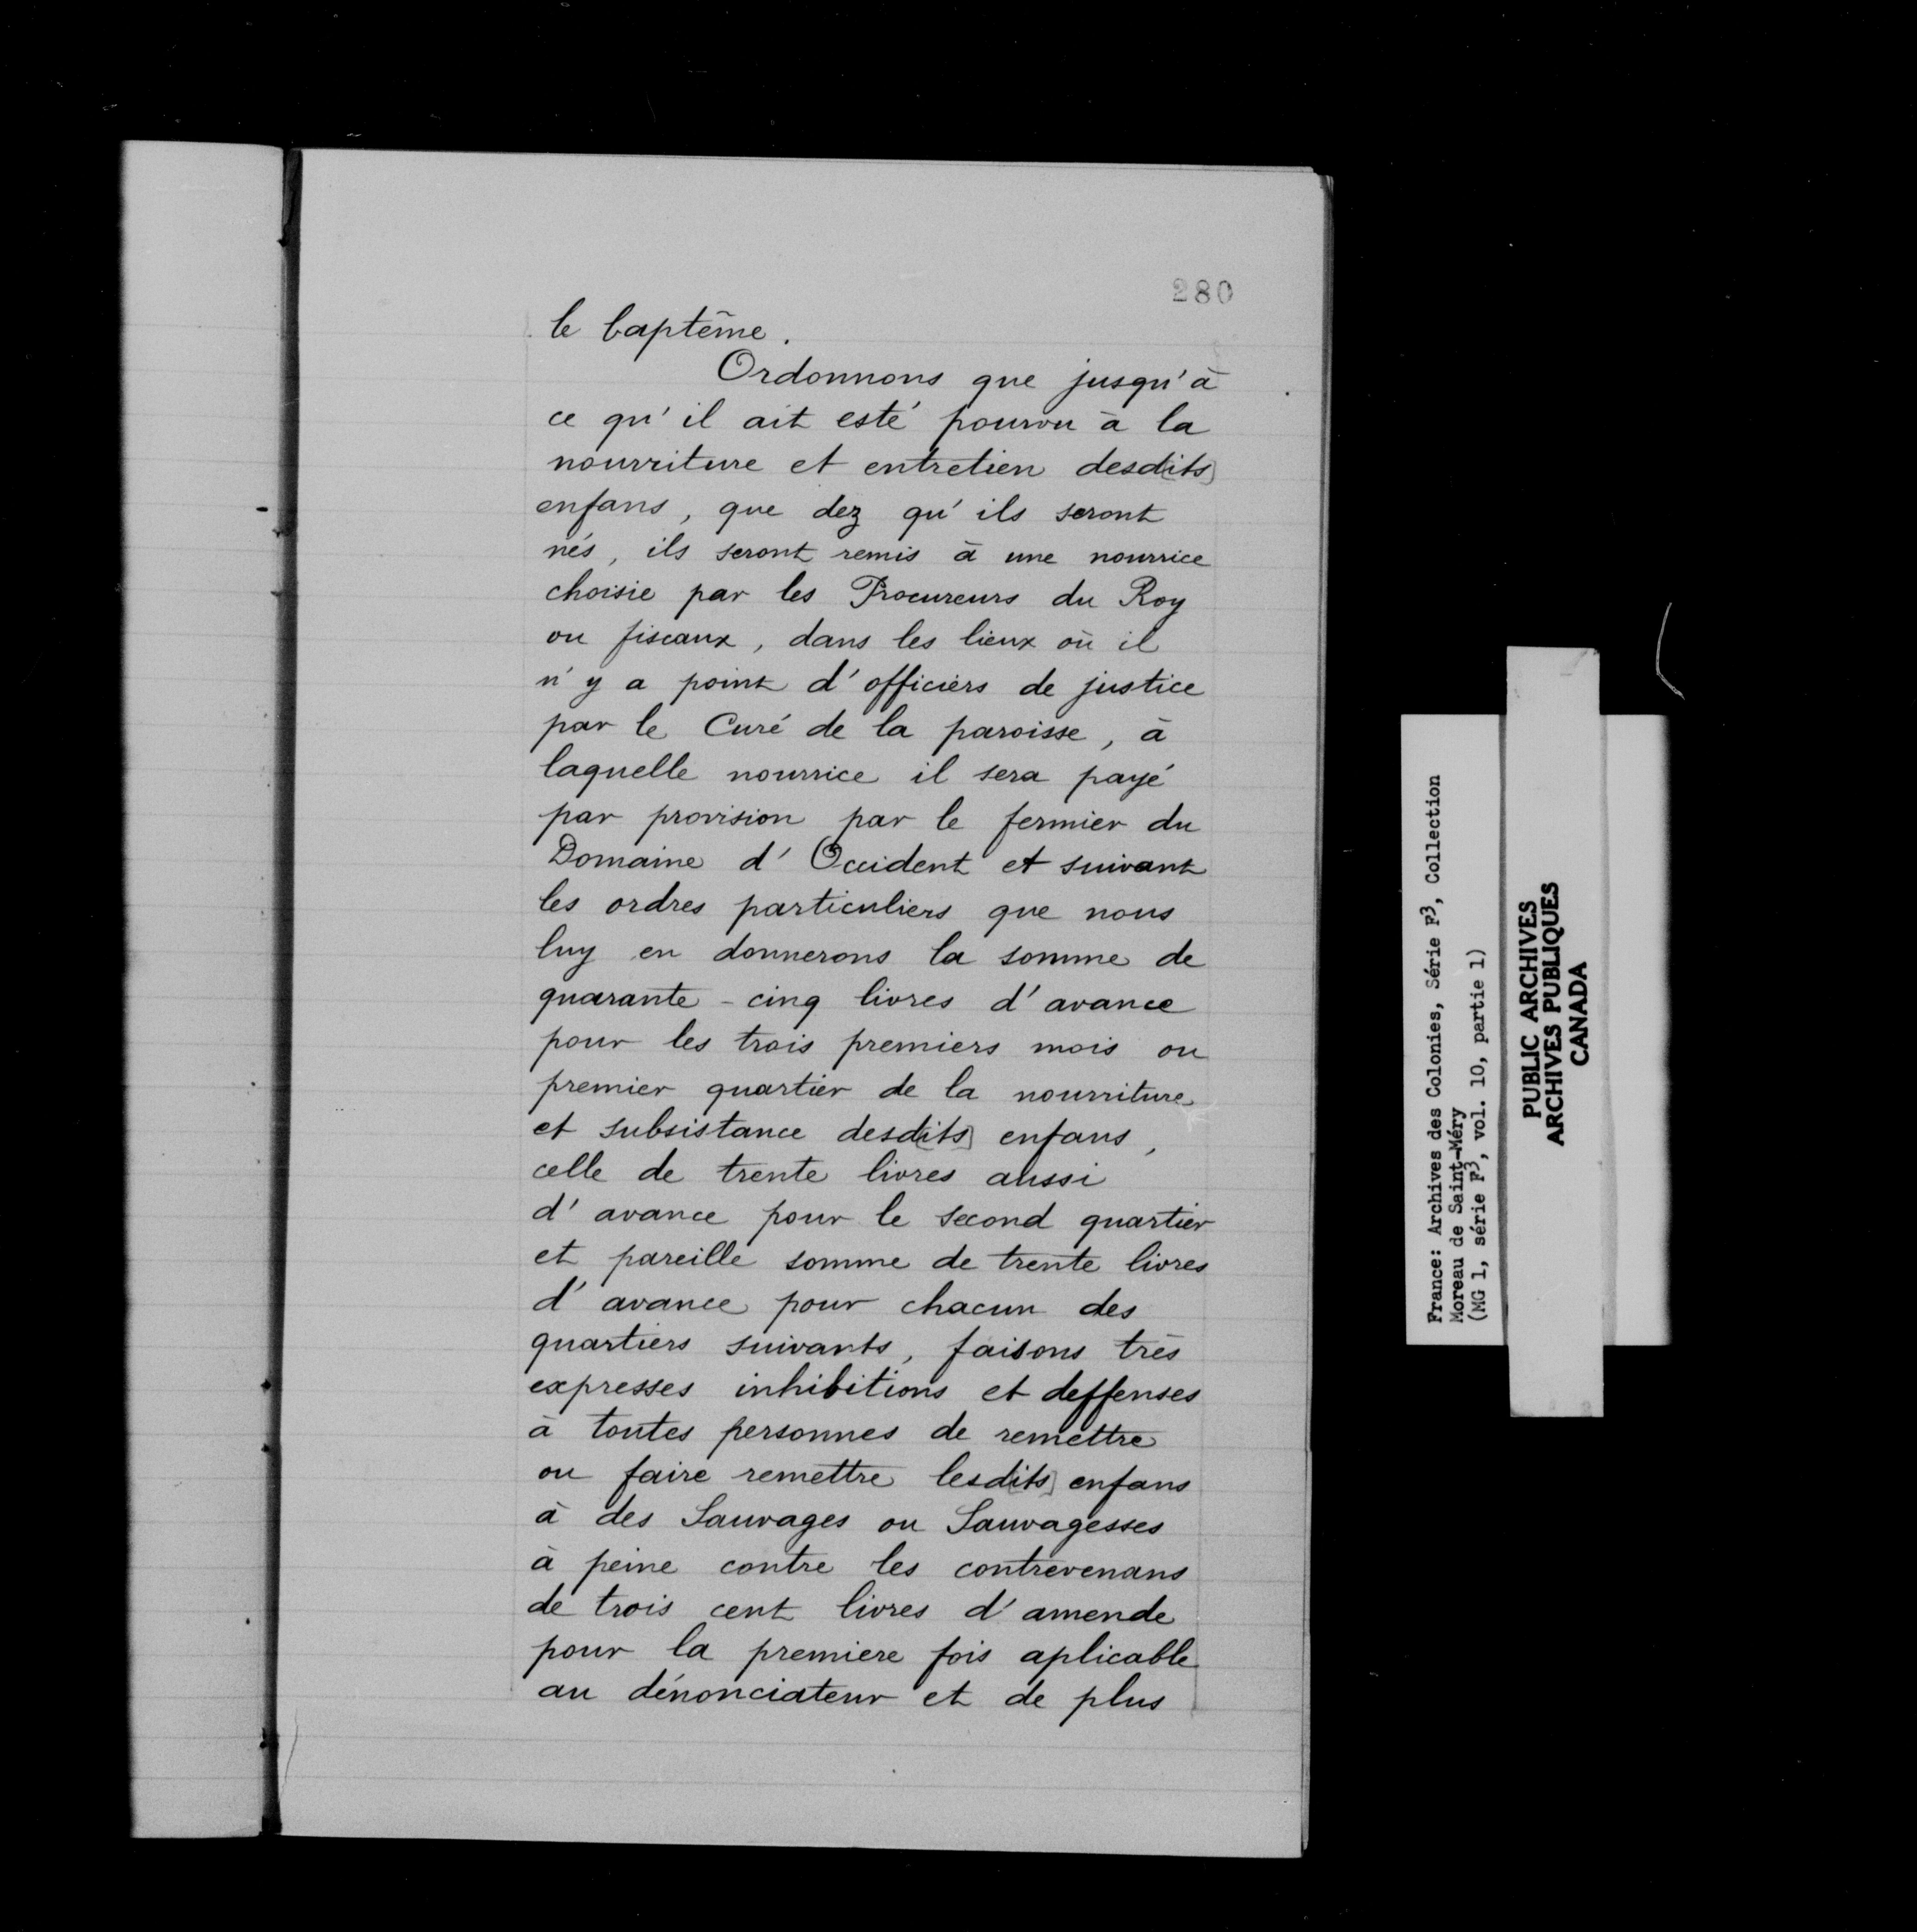 280
le baptême.
Ordonnons que jusqu'à
ce qu'il ait esté pourvu à la
nourriture et entretien desd[its]
enfans, que dez qu'ils seront
nés, ils seront remis à une nourrice
choisie par les Procureurs du Roy
ou fiscaux, dans les lieux où il
n'y a point d'officiers de justice
par le Curé de la paroisse, à
laquelle nourrice il sera payé
par provision par le fermier du
Domaine d'Occident et suivant
les ordres particuliers que nous
luy en donnerons la somme de
quarante-cinq livres d'avance
pour les trois premiers mois ou
premier quartier de la nourriture
et subsistance desd[its] enfans,
celle de trente livres aussi
d'avance pour le second quartier
et pareille somme de trente livres
d'avance pour chacun des
quartiers suivants, faisons très
expresses inhibitions et deffenses
à toutes personnes de remettre
ou faire remettre lesd[its] enfans
à des Sauvages ou Sauvagesses
à peine contre les contrevenans
de trois cent livres d'amende
pour la premiere fois aplicable
au dénonciateur et de plus
France: Archives des Colonies, Série F3, Collection
Moreau de Saint-Méry
(MG 1, série F3, vol. 10, partie 1)
PUBLIC ARCHIVES
ARCHIVES PUBLIQUES
CANADA